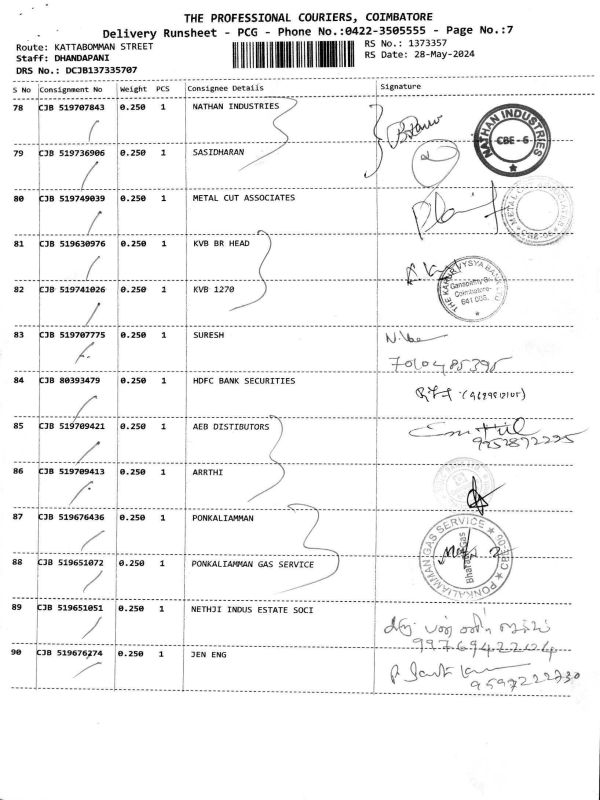 THE PROFESSIONAL COURIERS, COIMBATORE
Delivery Runsheet - PCG - Phone No.:0422-3505555 - Page No.:7
Route: KATTABOMMAN STREET
RS No.: 1373357
Staff: DHANDAPANI
RS Date: 28-May-2024
DRS No.: DCJB137335707
S No Consignment No Weight PCS Consignee Details Signature
78 CJB 519707843 0.250 1 NATHAN INDUSTRIES
NATHAN INDUSTRIES
CBE - 6
79 CJB 519736906 0.250 1 SASIDHARAN
80 CJB 519749039 0.250 1 METAL CUT ASSOCIATES
81 CJB 519630976 0.250 1 KVB BR HEAD
THE KARUR VYSYA BANK LTD
Coimbatore-
641 006.
82 CJB 519741026 0.250 1 KVB 1270
83 CJB 519707775 0.250 1 SURESH
7010485395
84 CJB 80393479 0.250 1 HDFC BANK SECURITIES
85 CJB 519709421 0.250 1 AEB DISTIBUTORS
86 CJB 519709413 0.250 1 ARRTHI
87 CJB 519676436 0.250 1 PONKALIAMMAN
PONKALIAMMAN GAS SERVICE
Bharat Gas
88 CJB 519651072 0.250 1 PONKALIAMMAN GAS SERVICE
89 CJB 519651051 0.250 1 NETHJI INDUS ESTATE SOCI
9976942204
90 CJB 519676274 0.250 1 JEN ENG
9597222730